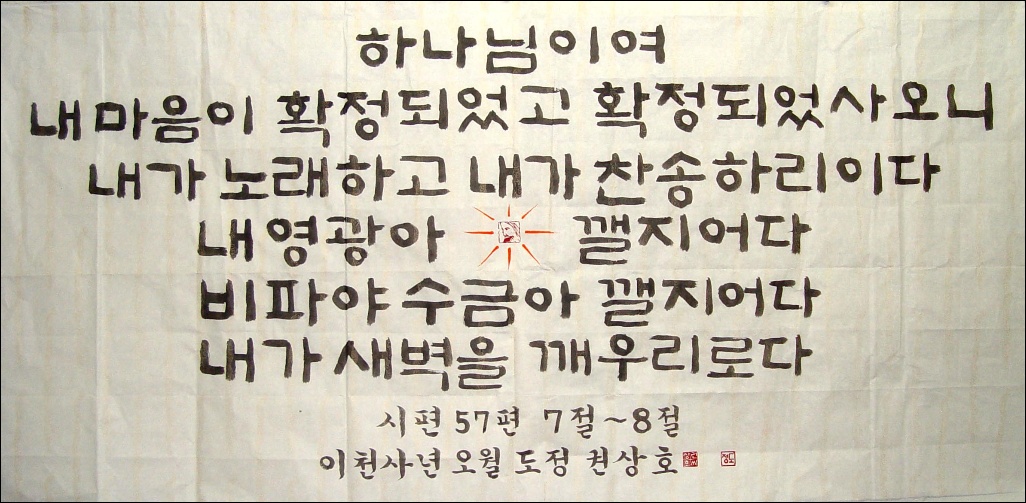 하나님이여
내마음이 확정되었고 확정되었사오니
내가 노래하고 내가 찬송하리이다
내영광아 깰지어다
비파야 수금아 깰지어다
내가 새벽을 깨우리로다
시편 57편 7절~8절
이천사년 오월 도정 권상호